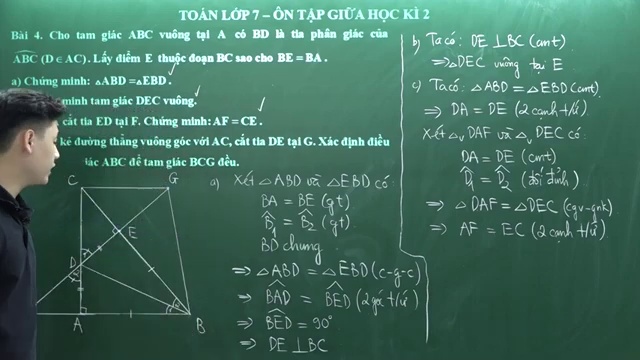 TOÁN LỚP 7 – ÔN TẬP GIỮA HỌC KÌ 2
Bài 4. Cho tam giác ABC vuông tại A có BD là tia phân giác của
ABC (D ∈ AC). Lấy điểm E thuộc đoạn BC sao cho BE = BA.
a) Chứng minh: △ABD = △EBD.
minh tam giác DEC vuông.
cắt tia ED tại F. Chứng minh: AF = CE.
kẻ đường thẳng vuông góc với AC, cắt tia DE tại G. Xác định điều
giác ABC để tam giác BCG đều.
C
G
E
D
A
B
a) Xét △ABD và △EBD có
BA = BE (gt)
B̂1 = B̂2 (gt)
BD chung
⇒ △ABD = △EBD (c-g-c)
⇒ BAD = BED (2 góc t/ứ)
⇒ BED = 90°
⇒ DE ⊥ BC
b) Ta có: DE ⊥ BC (cmt)
⇒ △DEC vuông tại E
c) Ta có: △ABD = △EBD (cmt)
⇒ DA = DE (2 cạnh t/ứ)
Xét △v DAF và △v DEC có:
DA = DE (cmt)
D̂1 = D̂2 (đối đỉnh)
⇒ △DAF = △DEC (cgv-gnk)
⇒ AF = EC (2 cạnh t/ứ)